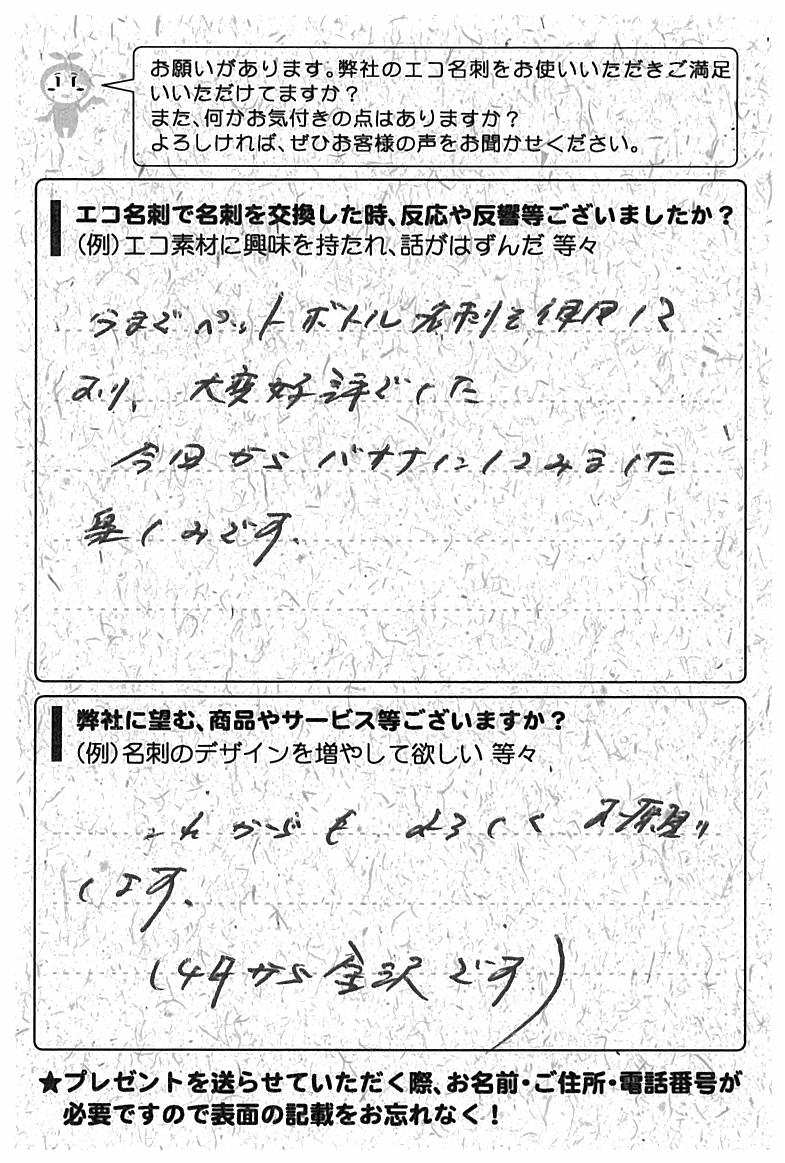 お願いがあります。弊社のエコ名刺をお使いいただきご満足
いいただけてますか？
また、何かお気付きの点はありますか？
よろしければ、ぜひお客様の声をお聞かせください。
エコ名刺で名刺を交換した時、反応や反響等ございましたか？
（例）エコ素材に興味を持たれ、話がはずんだ 等々
今までペットボトル名刺を使用して
おり、大変好評でした
今回からバナナにしてみました
楽しみです.
弊社に望む、商品やサービス等ございますか？
（例）名刺のデザインを増やして欲しい 等々
これからも よろしく お願い
します.
（4月から金沢です）
★プレゼントを送らせていただく際、お名前・ご住所・電話番号が
必要ですので表面の記載をお忘れなく！